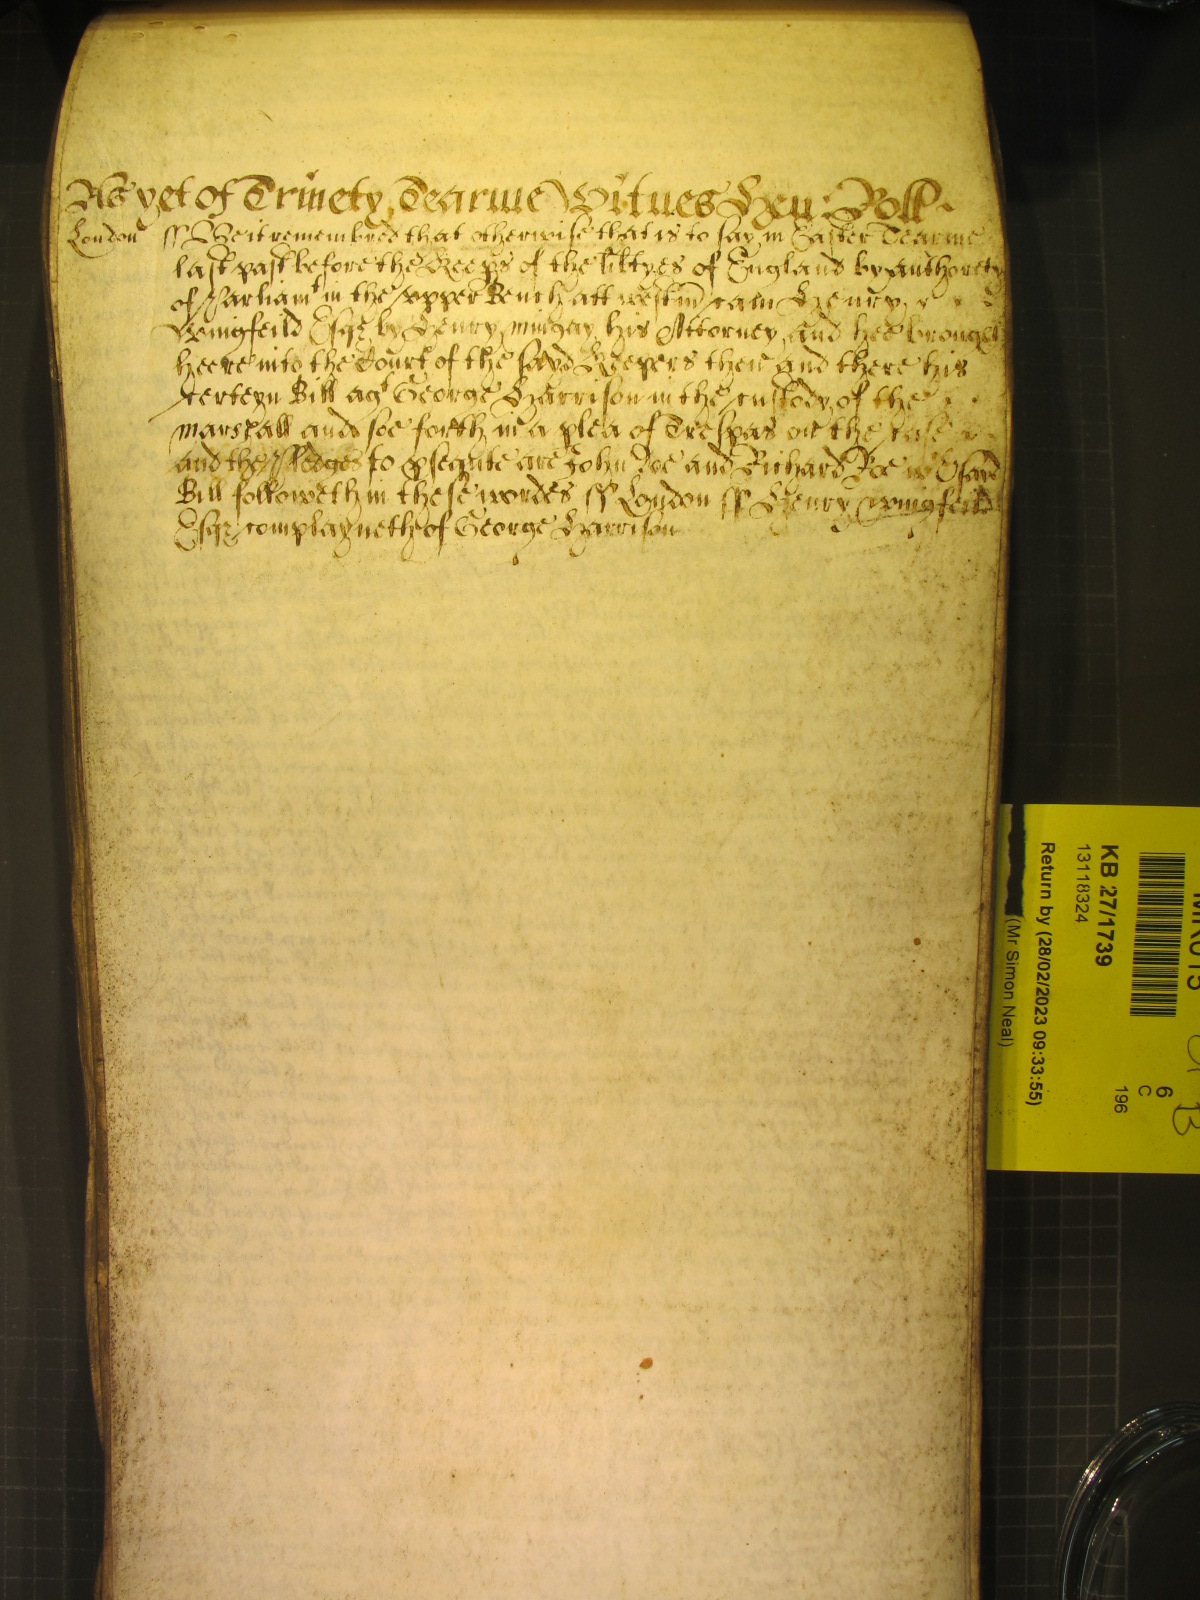 As yet of Trinety Tearme Witnes Hen: Rolle
London ss Be it remembred that otherwise that is to say in Easter Tearme
last past before the Keeps of the libtyes of England by authorety
of Parliamt in the upper Bench att westm cam Henry
Wingfeild Esqr by Henry mingay his Attorney and hee brought
heere into the Court of the sayd Keepers then and there his
certeyn Bill agt George Harrison in the custody of the
marshall and soe forth in a plea of Trespas on the case
and the Pledges to psequte are John Doe and Richard Roe wch sayd
Bill followeth in these wordes ss London ss Henry wingfeild
Esqr complayneth of George Harrison
KB 27/1739
13118324
Return by (28/02/2023 09:33:55)
(Mr Simon Neal)
6
C
196